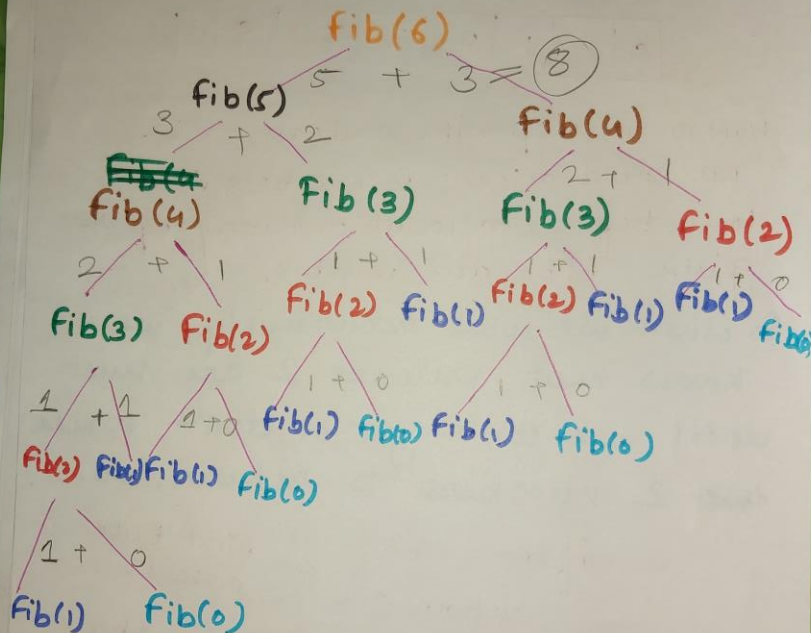 fib(6)
5 + 3 = 8
fib(5)
fib(4)
3 + 2
2 + 1
fib(4
fib(4)
fib(3)
fib(3)
fib(2)
2 + 1
1 + 1
1 + 1
1 + 0
fib(3)
fib(2)
fib(2)
fib(1)
fib(2)
fib(1)
fib(1)
fib(0)
1 + 1
1 + 0
1 + 0
1 + 0
fib(2)
fib(1)
fib(1)
fib(0)
fib(1)
fib(0)
fib(1)
fib(0)
1 + 0
fib(1)
fib(0)